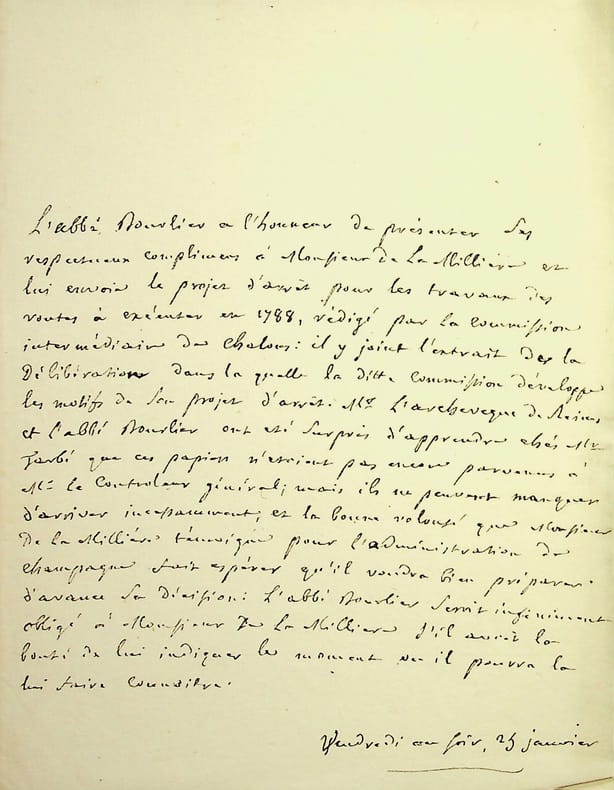 L'abbé Bourlier a l'honneur de présenter ses
respectueux complimens à Monsieur de La Milliere et
lui envoie le projet d'arrêt pour les travaux des
routes à exécuter en 1788, rédigé par la Commission
intermédiaire de Chalons: il y joint l'extrait de la
Délibération dans la quelle la ditte Commission développe
les motifs de son projet d'arrêt. Mr. L'archeveque de Reims
et l'abbé Bourlier ont eté surpris d'apprendre chés Mr
que ces papiers n'etoient pas encore parvenus à
Mr. le Controleur général; mais ils ne peuvent manquer
d'arriver incessamment, et la bonne volonté que Monsieur
De la Milliere témoigne pour l'administration de
champagne fait espérer qu'il voudra bien préparer
d'avance sa décision: L'abbé Bourlier seroit infiniment
obligé à Monsieur De La Milliere s'il avoit la
bonté de lui indiquer le moment ou il pourra la
lui faire connoitre.
Vendredi au soir, 25 janvier